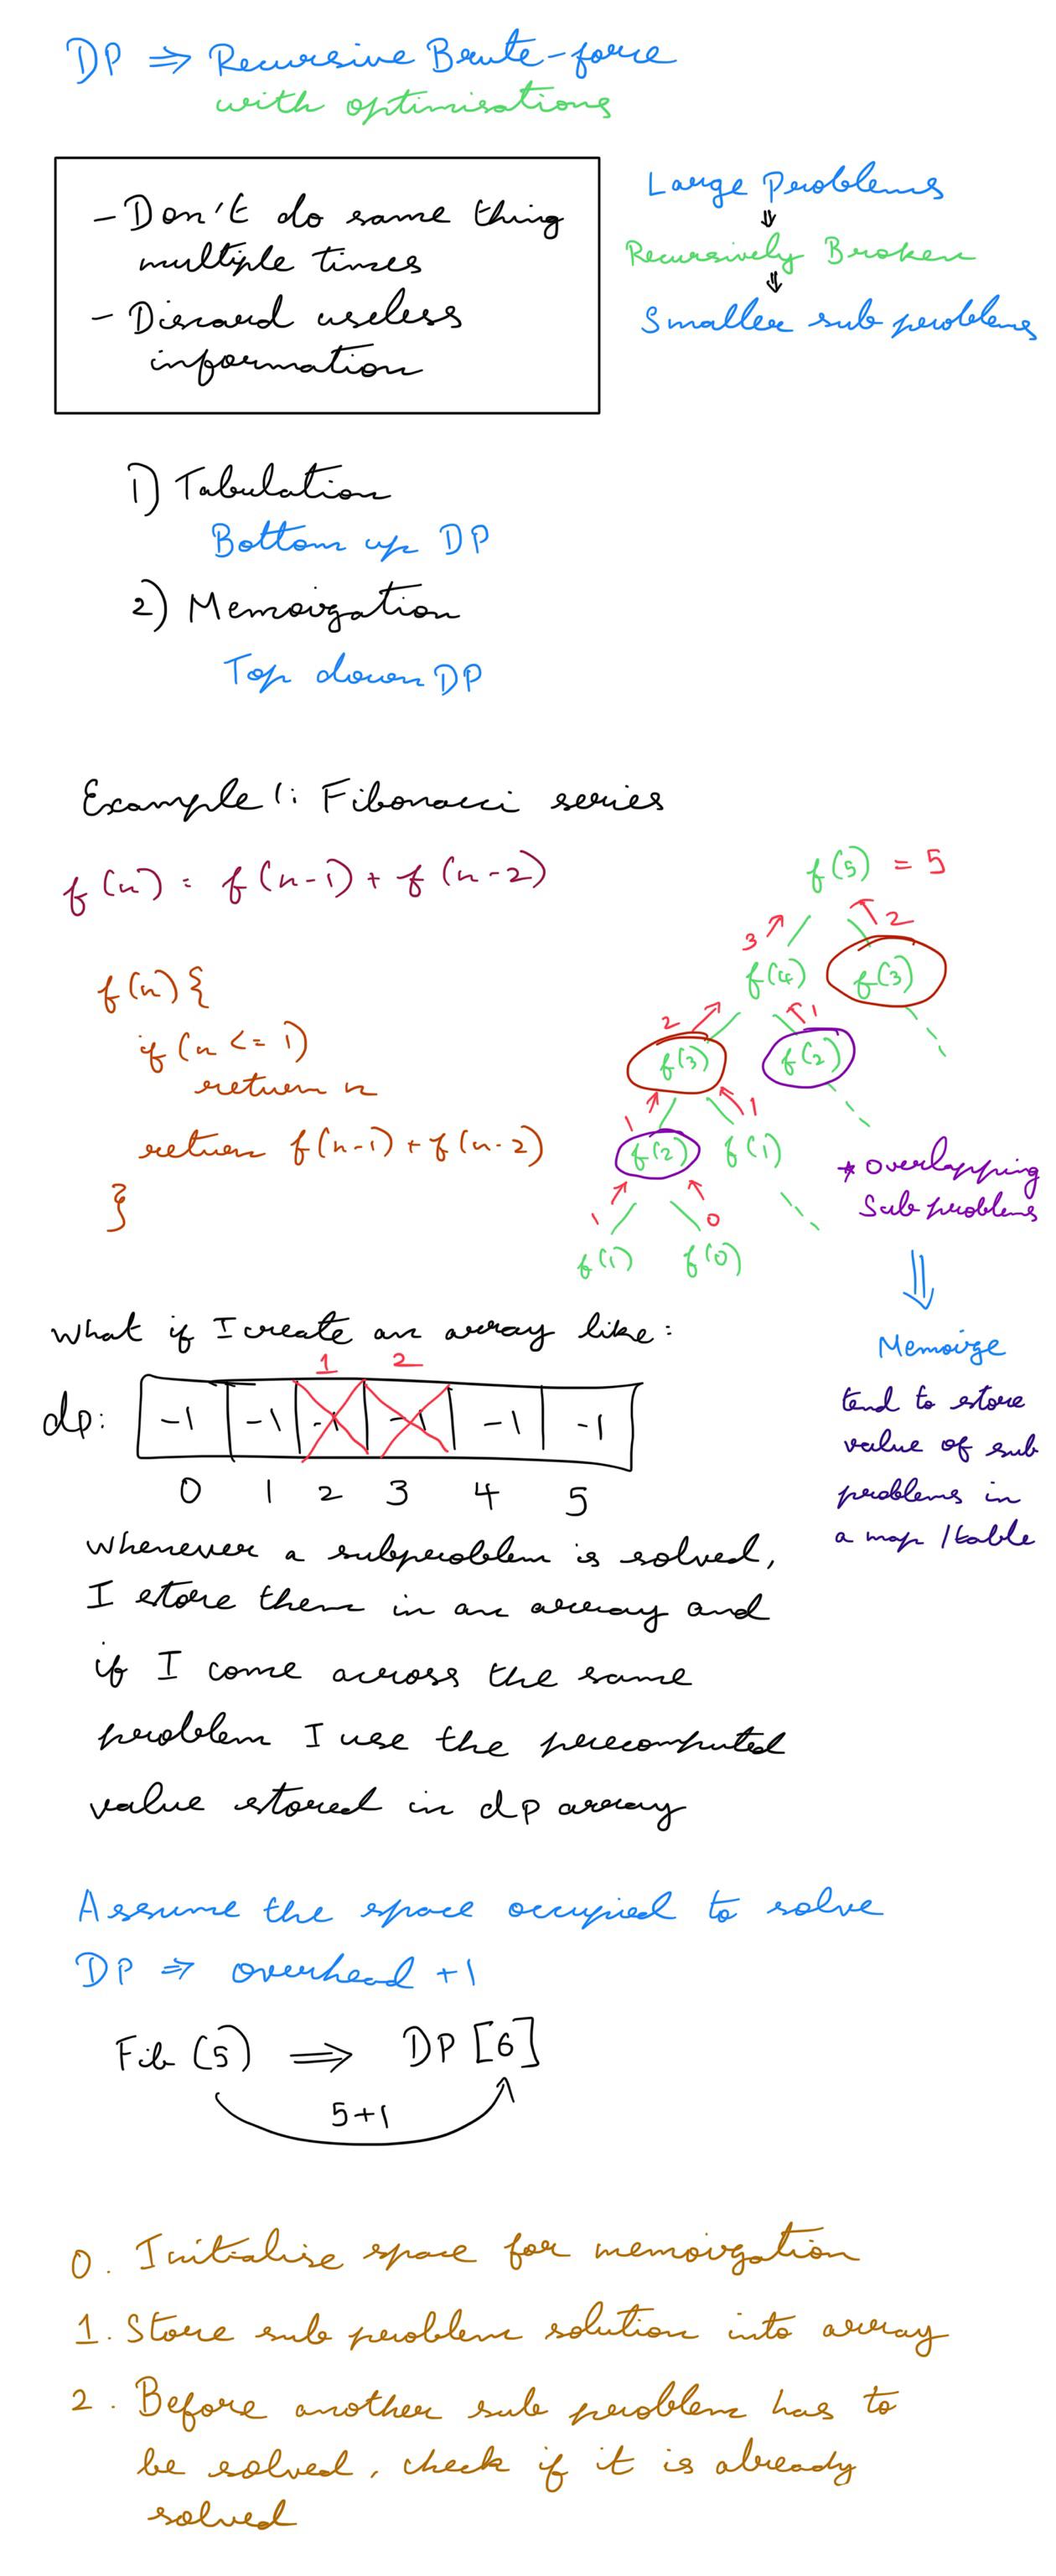 DP ⇒ Recursive Brute-force
with optimisations
- Don't do same thing
multiple times
- Discard useless
information
Large Problems
⇓
Recursively Broken
⇓
Smaller sub problems
1) Tabulation
Bottom up DP
2) Memoization
Top down DP
Example 1: Fibonacci series
f(n) = f(n-1) + f(n-2)
f(n) {
if (n <= 1)
return n
return f(n-1) + f(n-2)
}
f(5) = 5
3 2
f(4) f(3)
2 1
f(3) f(2)
1 1
f(2) f(1)
1 0
f(1) f(0)
* Overlapping
Sub problems
⇓
Memoize
tend to store
value of sub
problems in
a map / table
What if I create an array like:
1 2
dp: -1 -1 -1 -1 -1 -1
0 1 2 3 4 5
Whenever a subproblem is solved,
I store them in an array and
if I come across the same
problem I use the precomputed
value stored in dp array
Assume the space occupied to solve
DP ⇒ overhead +1
Fib (5) ⇒ DP [6]
5+1
0. Initialise space for memoization
1. Store sub problem solution into array
2. Before another sub problem has to
be solved, check if it is already
solved